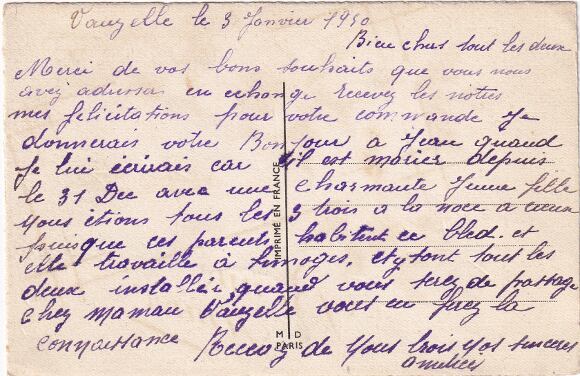 Vauzelle le 3 Janvier 1950
Bien chers tout les deux
Merci de vos bons souhaits que vous nous
avez adresser en echange recevez les notres
mes félicitations pour votre commande Je
donnerais votre Bonjour a Jean quand
Je lui écrirais car il est marier depuis
le 31 Dec avec une charmante Jeune fille
nous étions tous les 3 trois a la noce a
puisque ces parents habitent ce bled. et
elle travaille à Limoges, et y sont tout les
deux installér quand vous serez de passage
chez maman Vauzelle vous en ferez la
connaissance Recevez de nous trois nos sinceres
amitiés
IMPRIMÉ EN FRANCE
M D
PARIS